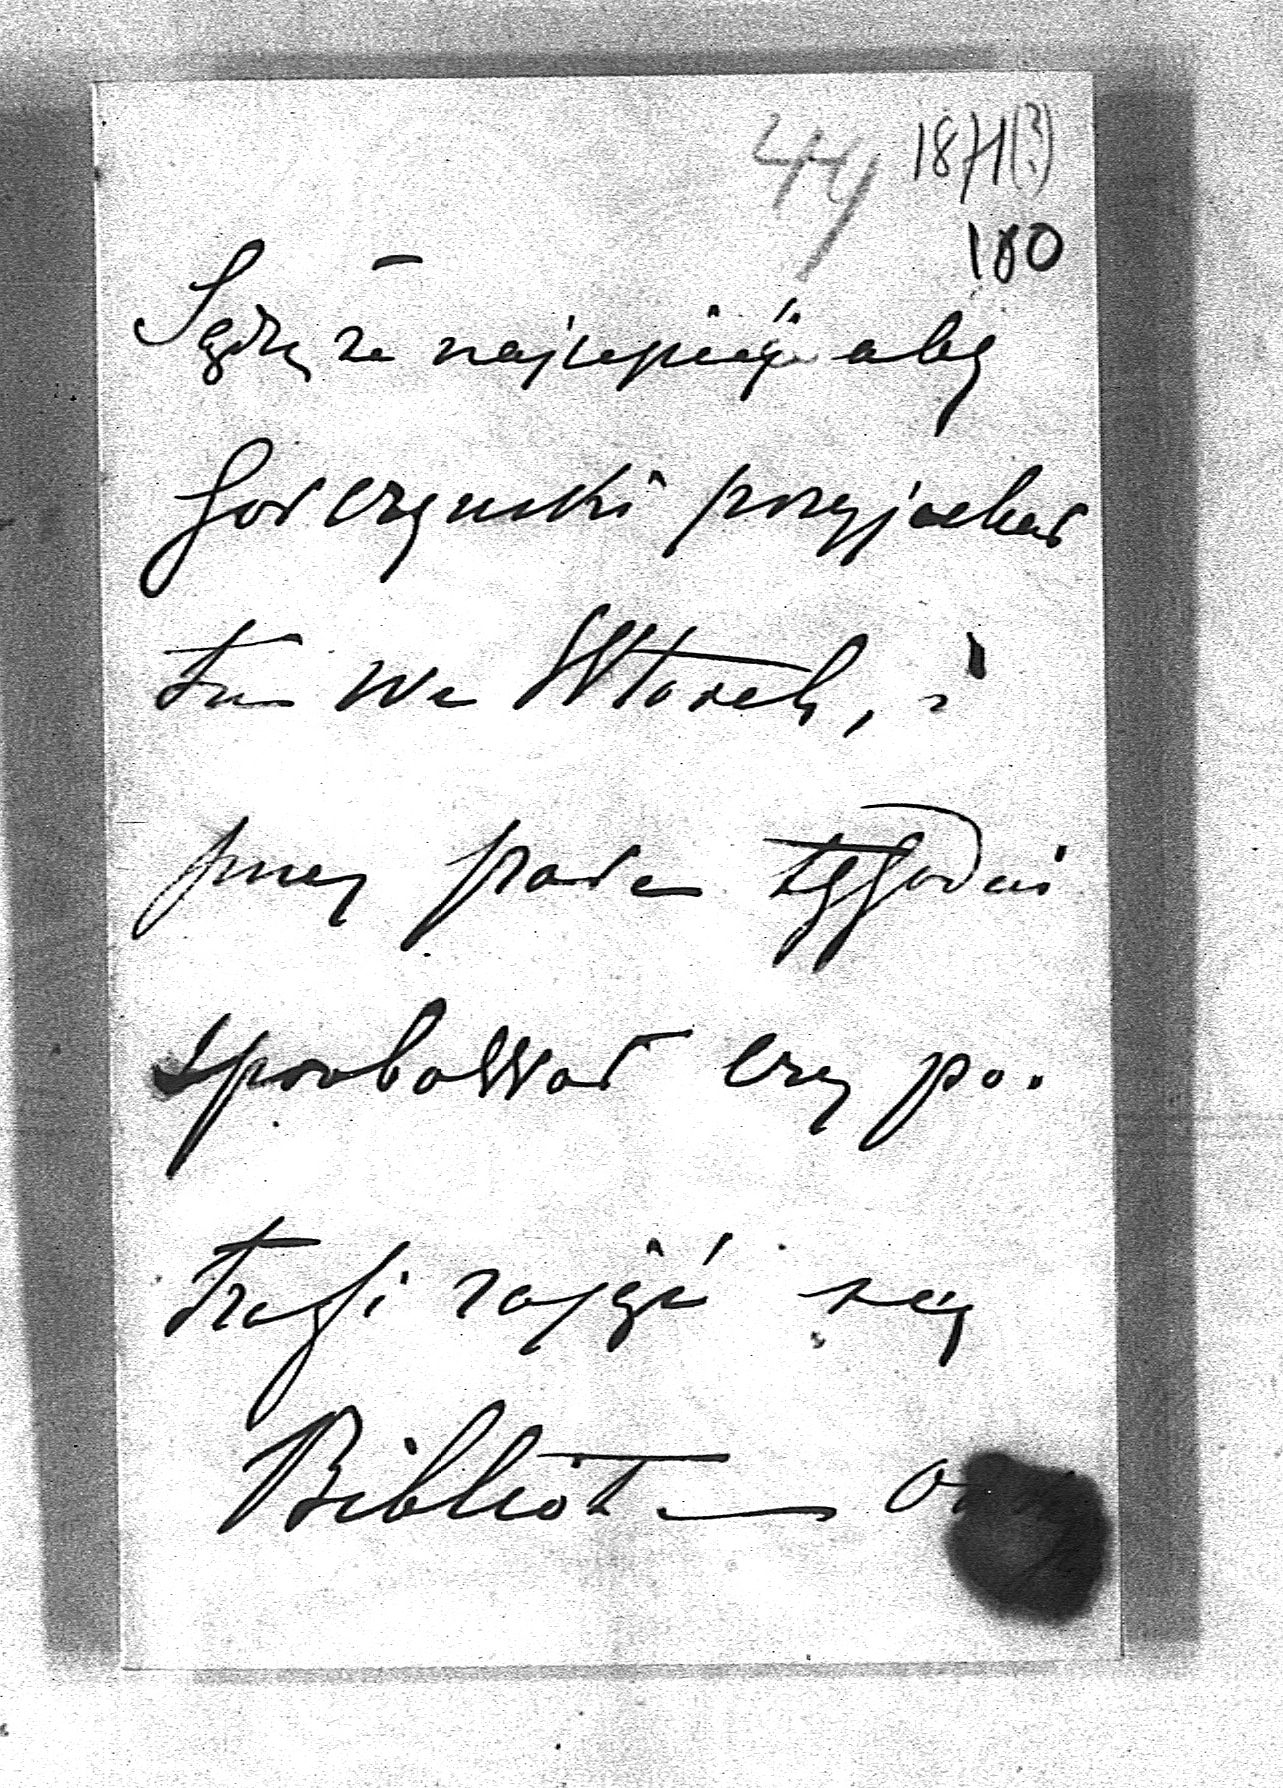 44 1871(?)
180
Sądzę że najlepiej aby
Gorczyński przyjechał
tu we Wtorek, i
przez parę tygodni
sprobował czy po-
trafi zająć się
Biblioteką